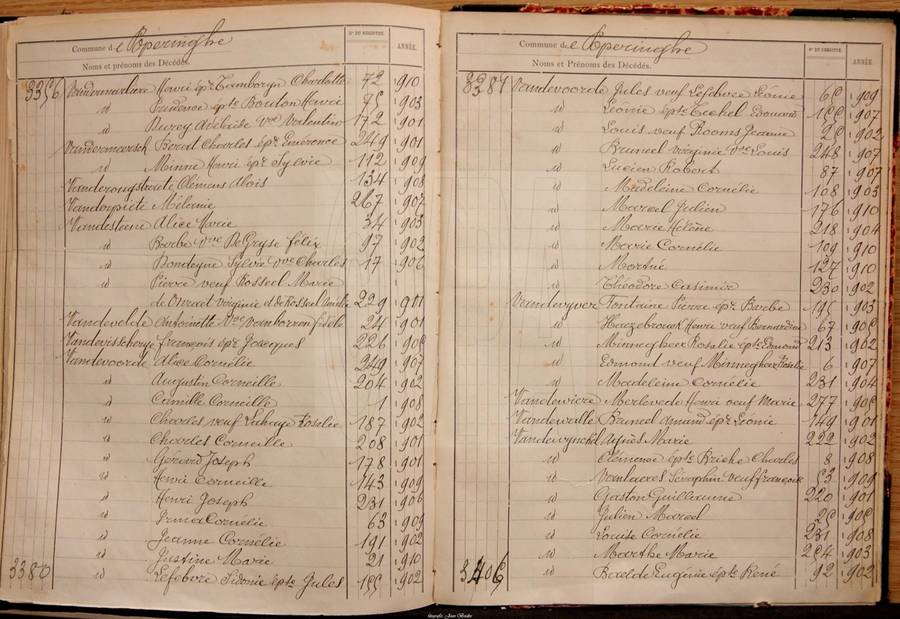 Commune de Poperinghe
Nos DU REGISTRE
ANNÉE.
Noms et prénoms des Décédés.
3356 Vandermarliere Henri épx Tamboryn Charlotte 72 910
id Prudence épte Bouton Henri 75 903
id Buzey Adelaïde Vve Valentin 172 901
Vandermeersch Benoit Charles épx Emérence 249 901
id Minne Henri épx Sylvie 112 909
Clémens Alois 134 908
Mélanie 267 907
Vandesteene Alice Marie 34 903
id Barbe Vve De Gryse félix 97 902
id Bondeyne Sylvie Vve Charles 17 906
id Pierre veuf Rosseel Marie
de Virginie et de Rosseel 229 901
Vandevelde Antoinette Vve fidèle 24 901
françois épx Jacques 226 905
Vandevoorde Alice Cornélie 249 907
id Augustin Corneille 204 902
id Camille Corneille 1 908
id Charles veuf Lahaye Rosalie 187 902
id Charles Corneille 208 901
id Gérard Joseph 178 901
id Henri Corneille 143 909
id Henri Joseph 231 906
id Irma Cornélie 63 909
id Jeanne Cornélie 191 902
id Justine Marie 21 910
3380 id Lefebvre Sidonie épte Jules 155 902
Commune de Poperinghe
Nos DU REGISTRE
ANNÉE
Noms et Prénoms des Décédés.
3381 Vandevoorde Jules veuf Lefebvre Sidonie 65 909
id Léonie épte Edouard 155 907
id Louis veuf Rooms Jeanne 25 902
id Bruneel Virginie Vve Louis 248 907
id Lucien Robert 87 907
id Madeleine Cornélie 108 903
id Marcel Julien 176 910
id Marie Hélène 218 904
id Marie Cornélie 109 910
id Mortné 127 910
id Théodore Casimir 230 902
Vandevyver Fontaine Pierre épx Barbe 195 903
id Hazebrouck Henri veuf Bernardine 67 905
id Minnegheer Rosalie épte Edmond 213 902
id Edmond veuf Minnegheer Rosalie 6 907
id Madeleine Cornélie 231 904
Vandewiere Merlevede Henri veuf Marie 277 905
Vandewalle Bruneel Amand épx Léonie 149 901
Vandewynckel Agnès Marie 222 902
id Clémence épte Brieke Charles 8 908
id Séraphin veuf françoise 53 909
id Gaston Guillaume 220 901
id Julien Marcel 25 905
id Louise Cornélie 231 908
id Marthe Marie 254 903
3406 id Eugénie épte René 92 902